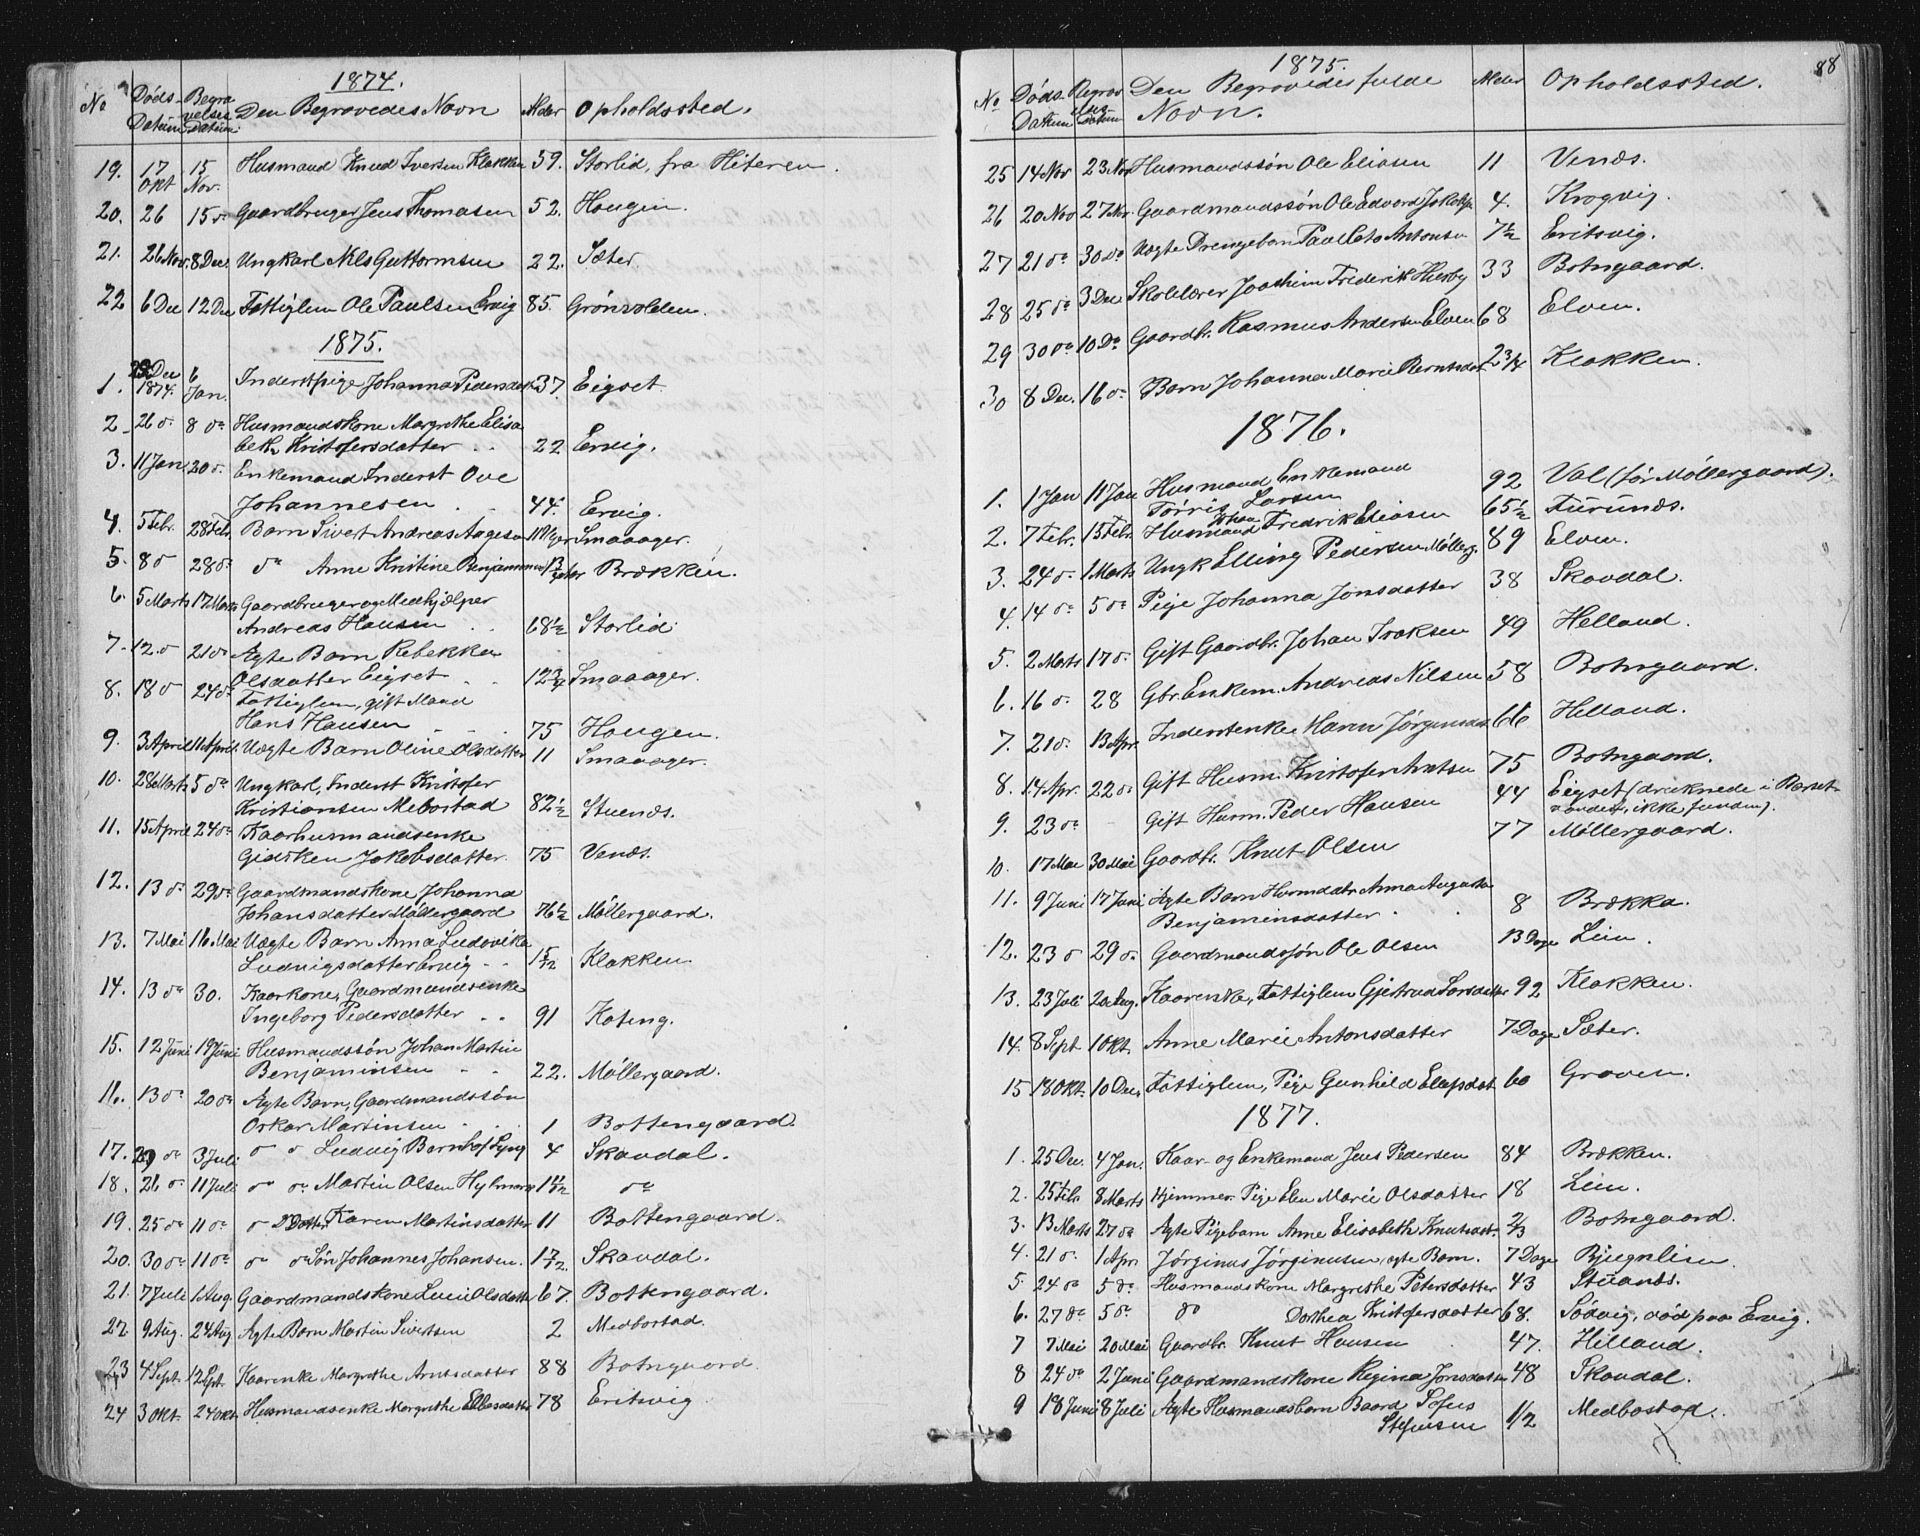 1874.
No Døds- Datum Begravelses Datum Den Begravedes Navn Alder Opholdssted.
19. 17 Okt 15 Nov. Husmand Knud Iversen Klakken 59. Storlid, fra Hiteren.
20. 26 15 do Gaardbruger Jens Thomasen 52. Hougen.
21. 26 Nov. 8 Dec. Ungkarl Nils Guttormsen 22. Sæter.
22 6 Dec 12 Dec Fattiglem Ole Paulsen Ervig 85. Grönvolden.
1875.
1. 23 Dec 1874. 6 Jan. Inderstpige Johanna Pedersdatter 37. Eigset.
2 26 do 8 do Husmandskone Margrethe Elisa
beth Kristofersdatter 22 Ervig.
3. 11 Jan 20 do Enkemand Inderst Ove
Johannesen 44. Ervig.
4. 5 Febr. 28 Feb. Barn Sivert Andreas Aagesen Smaaager.
5. 8 do 28 do do Anne Kristine Brækken.
6. 5 Marts 17 Marts Gaardbruger og Medhjælper
Andreas Hansen 68 1/2 Storlid.
7. 12 do 21 do Ægte Barn Rebekka
Olsdatter Eigset 12 3/4 Smaaager.
8. 18 do 24 do Fattiglem, gift Mand
Hans Hansen 75 Hougen.
9. 3 April 11 April. Uægte Barn Oline Olsdatter 11 Smaaager.
10. 28 Marts 5 do Ungkarl, Inderst Kristofer
Kristiansen Mebostad 82 1/2 Stuends.
11. 15 April 24 do Kaarhusmandsenke
Gidsken Jakobsdatter. 75 Venæs.
12. 13 do 29 do Gaardmandskone Johanna
Johansdatter Møllergaard 76 1/2 Møllergaard.
13. 7 Mai 16 Mai Uægte Barn Anna Ludovika
Ludvigsdatter Ervig 1 5/12 Klakken
14. 13 do 30. Kaarkone, Gaardmandsenke
Ingeborg Pedersdatter 91 Koteng.
15. 12 Juni 19 Juni Husmandssön Johan Martin
Benjaminsen 22. Møllergaard.
16. 13 do 20 do Ægte Barn, Gaardmandssön
Oskar Martinsen 1 Bottengaard.
17. 20 do 3 Juli do do Ludvig Lyng 4 Skavdal.
18. 26 do 11 Juli do do Martin Olsen do
19. 25 do 11 do do Datter Karen Martinsdatter 11 Bottengaard.
20. 30 do 11 do do do Sön Johannes Johansen. 1 7/12. Skavdal.
21. 7 Juli 1 Aug. Gaardmandskone Lucie Olsdatter 67. Bottengaard.
22 9 Aug. 24 Aug Ægte Barn Martin Sivertsen 2 Medbostad.
23 4 Sept. 12 Sept. Kaarenke Margrethe Arntsdatter 88 Botngaard.
24 3 Okt. 24 Okt. Husmandsenke Margrethe 78 Eritsvig.
88
1875.
No Døds- Datum Begravelses Datum Den Begravedes fulde Navn. Alder Opholdssted.
25 14 Nov 23 Nov Husmandssön Ole Eliasen 11 Venæs.
26 20 Nov 27 Nov. Gaardmandssön Ole Edvard Jakobs. 4. Krogvig.
27 21 do 30 do Uægte Drengebarn Paul Antonsen 7 1/2 Eritsvig.
28 25 do 3 Dec Skolelærer Joachim Frederik Husby 33 Botngaard.
29 30 do 10 Do Gaardbr. Rasmus Andersen Elven 68 Elven.
30 8 Dec. 16 do Barn Johanna Marie Berntsdat. 2 3/4 Klakken.
1876.
1. 1 Jan 11 Jan Husmand Enkemand
Törris Larsen 92 Val (før Møllergaard).
2. 7 Febr. 15 Febr. Husmand Johan Fredrik Eliasen 65 1/2 Furunæs.
3. 24 do 1 Marts Ungk Elling Pedersen Mølleg. 89 Elven.
4. 14 do 5 do Pige Johanna Jonsdatter 38 Skavdal.
5. 2 Marts 17 do Gift Gaardbr. Johan Isaksen 49 Helland.
6. 16 do 28 Gbr. Enkem. Andreas Nilsen 58 Botngaard.
7. 21 do. 13 Apr. Inderstenke Maren Jørginsd. 66 Helland.
8. 14 Apr. 22 do Gift Husm. Kristofer 75 Botngaard.
9. 23 do - Gift Husm. Peder Hansen 44 Eigset (druknede i
, ikke funden).
10. 17 Mai 30 Mai Gaardbr. Knut Olsen 77 Møllergaard.
11. 9 Juni 17 Juni Ægte Barn Husmdatr Anna Augusta
Benjaminsdatter 8 Brækka.
12. 23 do 29 do Gaardmandssön Ole Olsen 13 Dage Lein.
13. 23 Juli 20 Aug. Kaarenke, Fattiglem Gjertrud Larsdatter 92 Klakken.
14. 8 Sept 1 Okt. Anne Marie Antonsdatter 7 Dage Sæter.
15 18 Okt. 10 Dec. Fattiglem, Pige Gunhild 60 Graven.
1877.
1. 25 Dec. 4 Jan. Kaar- og Enkemand Jens Pedersen 84 Brækken.
2. 25 Febr. 8 Marts Hjemmev. Pige Elen Marie Olsdatter 18 Lein.
3. 13 Marts 27 do Ægte Pigebarn Anne Elisabeth Knutsdt. 2/3 Botngaard.
4. 21 do. 1 Apr. Jørginus Jørginusen, ægte Barn. 7 Dage Bjugnlien.
5. 24 do 5 do. Husmandskone Margrethe Petersdatter 43 Stuands.
6. 27 do 5 do do Dorthea Kristofersdatter 68. Sødvig, död paa Ervig.
7 7 Mai 20 Mai Gaardbr. Knut Hansen 47. Helland.
8 24 do 2 Juni Gaardmandskone Regina Jonsdatter 48 Skavdal.
9 18 Juni 8 Juli Ægte Husmandsbarn Baard Sofus
Stefensen 1/2 Medbostad.